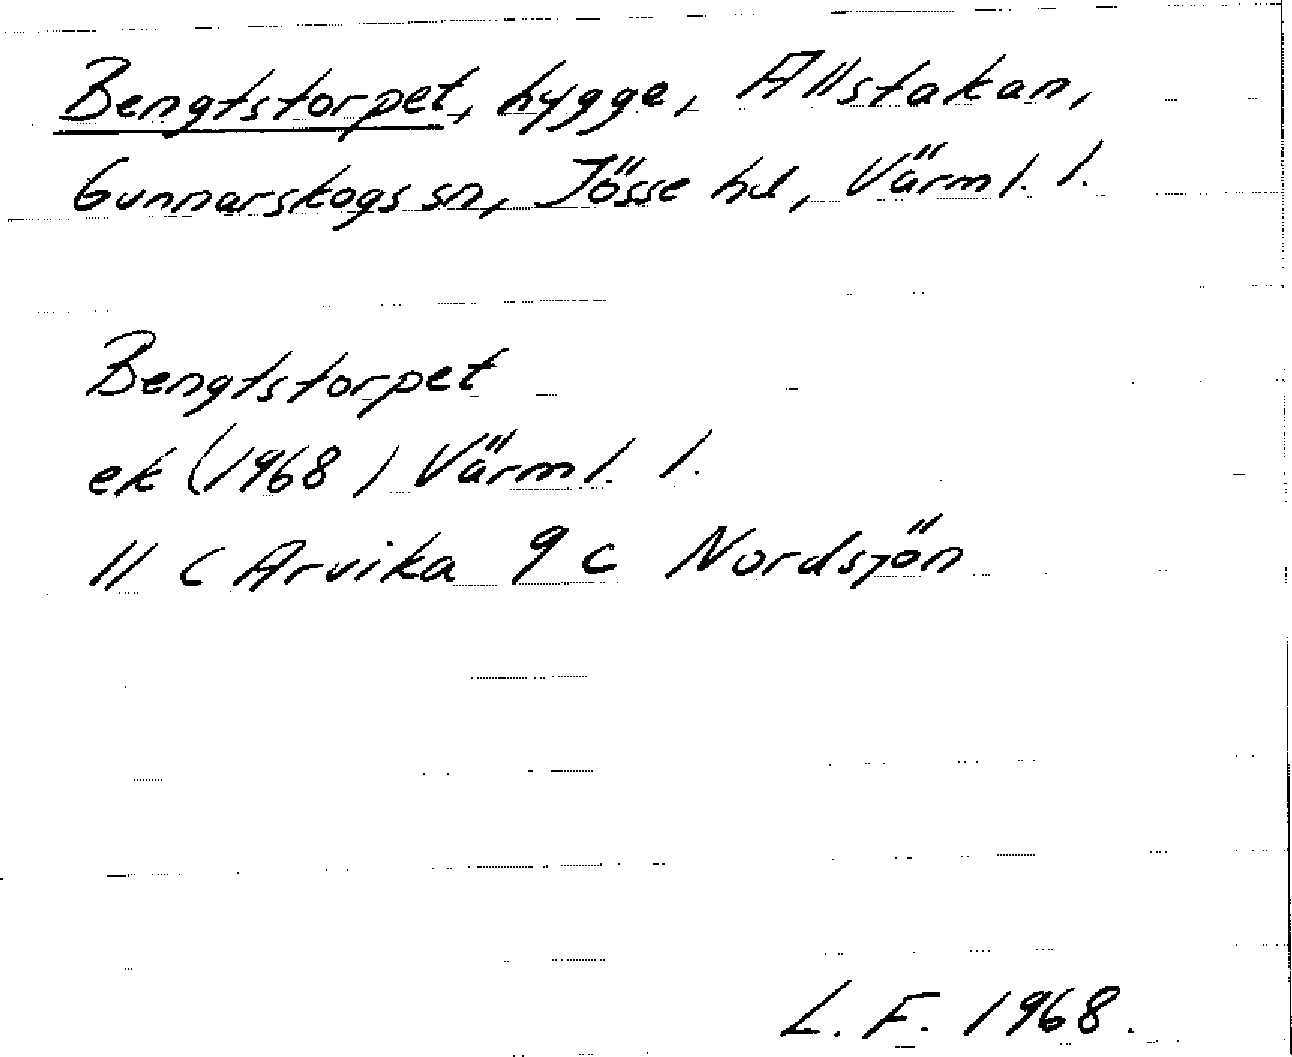 Bengtstorpet, hygge, Allstakan,
Gunnarskogs sn, Jösse hd, Värml. l.
Bengtstorpet
ek (1968) Värml. l.
11 C Arvika 9 c Nordsjön
L. F. 1968.